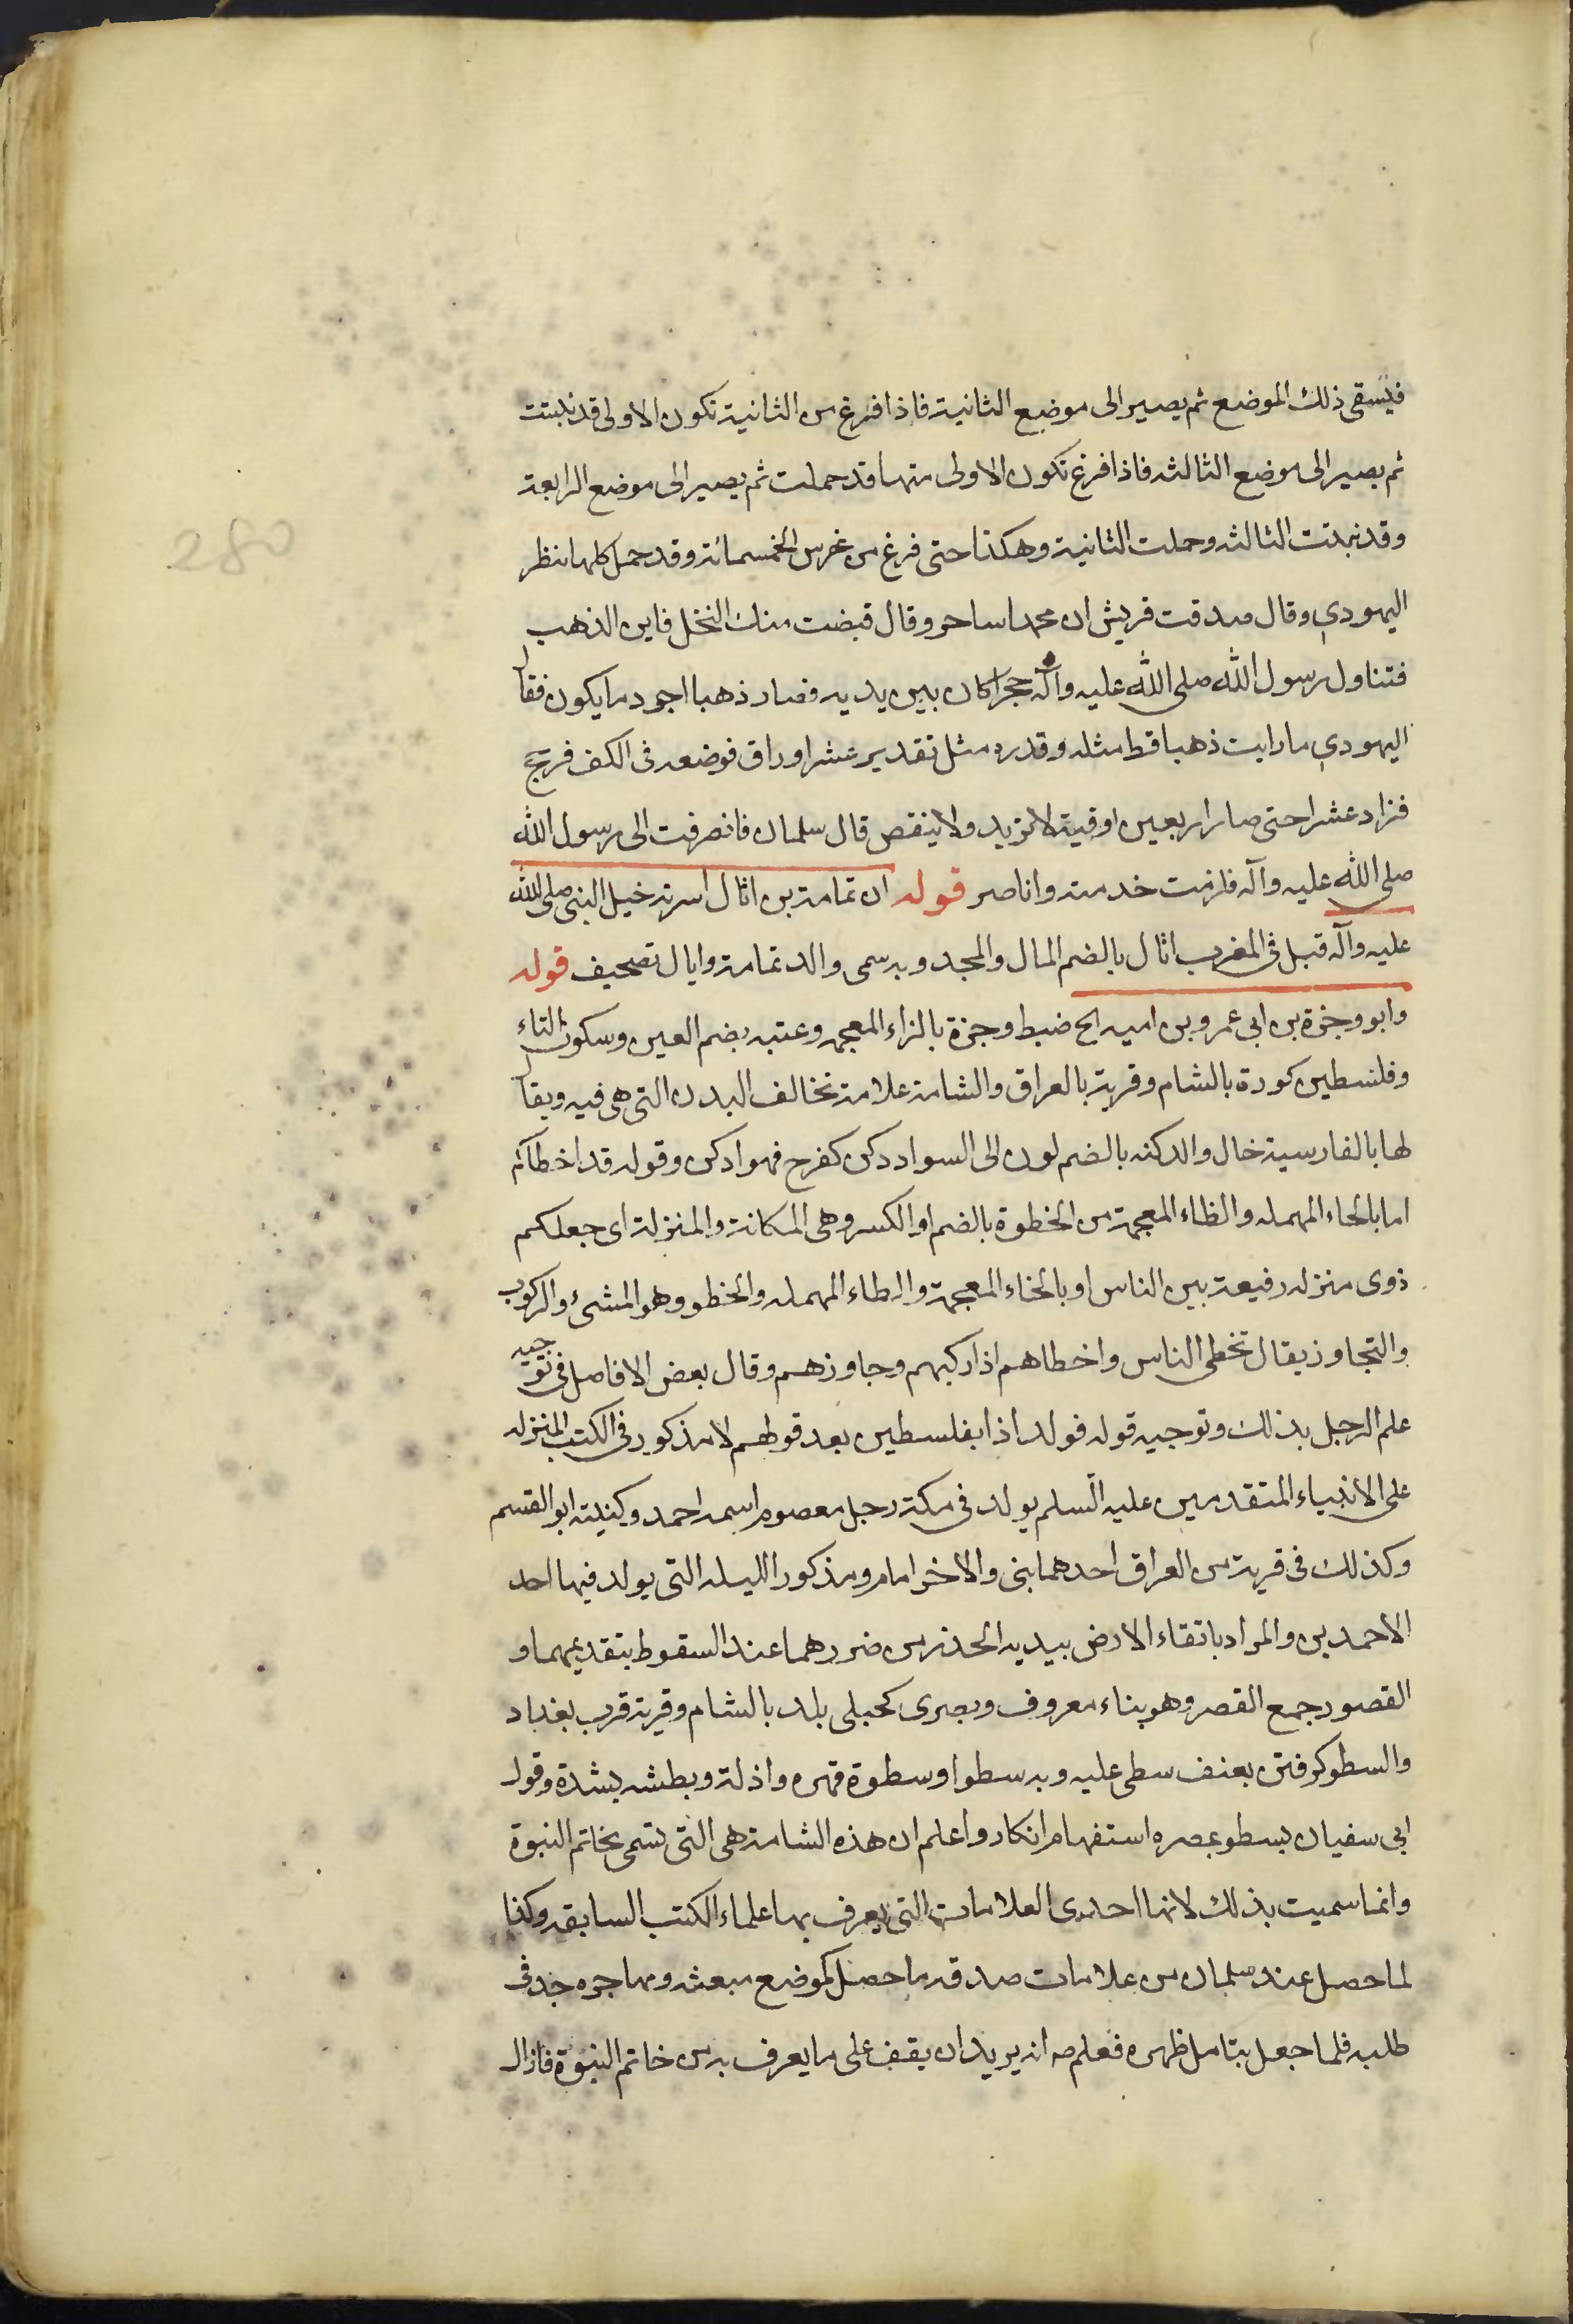 فيسقى ذلك الموضع ثم يصير الى موضع الثانية فاذا فرغ من الثانية تكون الاولى قد نبتت
ثم يصير الى موضع الثالثه فاذا فرغ تكون الاولى منها قد حملت ثم يصير الى موضع الرابعة
وقد نبتت الثالثه وحملت الثانية وهكذا حتى فرغ من غرس الخمسمائة وقد حمل كلها فنظر
اليهودي وقال صدقت قريش ان محمدا ساحر وقال قبضت منك النخل فاين الذهب
فتناول رسول الله صلى الله عليه وآله حجرا كان بين يديه فصار ذهبا اجود ما يكون فقال
اليهودي ما رايت ذهبا قط مثله وقدره مثل تقدير عشر اوراق فوضعه فى الكف فرجح
فزاد عشرا حتى صار اربعين اوقية لا تزيد ولا ينقص قال سلمان فانصرفت الى رسول الله
صلى الله عليه وآله فلزمت خدمته وانا صر قوله ان ثمامة بن اثال اسرته خيل النبى صلى الله
عليه وآله قبل فى المغرب اثال بالضم المال والمجد وبه سمى والد ثمامة وايال تصحيف قوله
وابو وجزة بن ابى عمرو بن اميه الخ ضبط وجزة بالزاء المعجمه وعتبه بضم العين وسكون التاء
وفلسطين كورة بالشام وقرية بالعراق والشامة علامة تخالف البدن التى هى فيه ويقال
لها بالفارسية خال والدكنه بالضم لون الى السواد دكن كفرح فهو ادكن وقوله قد اخطاكم
اما بالحاء المهمله والظاء المعجمة من الحظوة بالضم او الكسر وهى المكانة والمنزلة اى جعلكم
ذوى منزله رفيعة بين الناس او بالخاء المعجمة والطاء المهمله والخطو وهو المشئ والركوب
والتجاوز يقال تخطى الناس واخطاهم اذا ركبهم وجاوزهم وقال بعض الافاضل فى توجيه
علم الرجل بذلك وتوجيه قوله فولد اذا بفلسطين بعد قولهم لا مذكور فى الكتب المنزله
على الانبياء المتقدمين عليه السلم يولد فى مكة رجل معصوم اسمه احمد وكنيته ابو القسم
وكذلك فى قرية من العراق احدهما بنى والاخر امام ومذكور الليله التى يولد فيها احد
الاحمدين والمراد باتقاء الارض بيديه الحذر من ضررهما عند السقوط بتقديمهما و
القصور جمع القصر وهو بناء معروف وبصرى كحبلى بلد بالشام وقرية قرب بغداد
والسطو كرفتن بعنف سطى عليه وبه سطوا وسطوة قهره واذلة وبطشه بشدة وقول
ابى سفيان يسطو بمصره استفهام انكار واعلم ان هذه الشامة هى التى تسمى بخاتم النبوة
وانما سميت بذلك لانها احدى العلامات التى يعرف بها علماء الكتب السابقه وكذا
لما حصل عند سلمان من علامات صدقه ما حصل كموضع مبعثه ومهاجره جد فى
طلبه فلما جعل يتامل ظهره فعلم صه انه يريد ان يقف على ما يعرف به من خاتم النبوة فازال
280